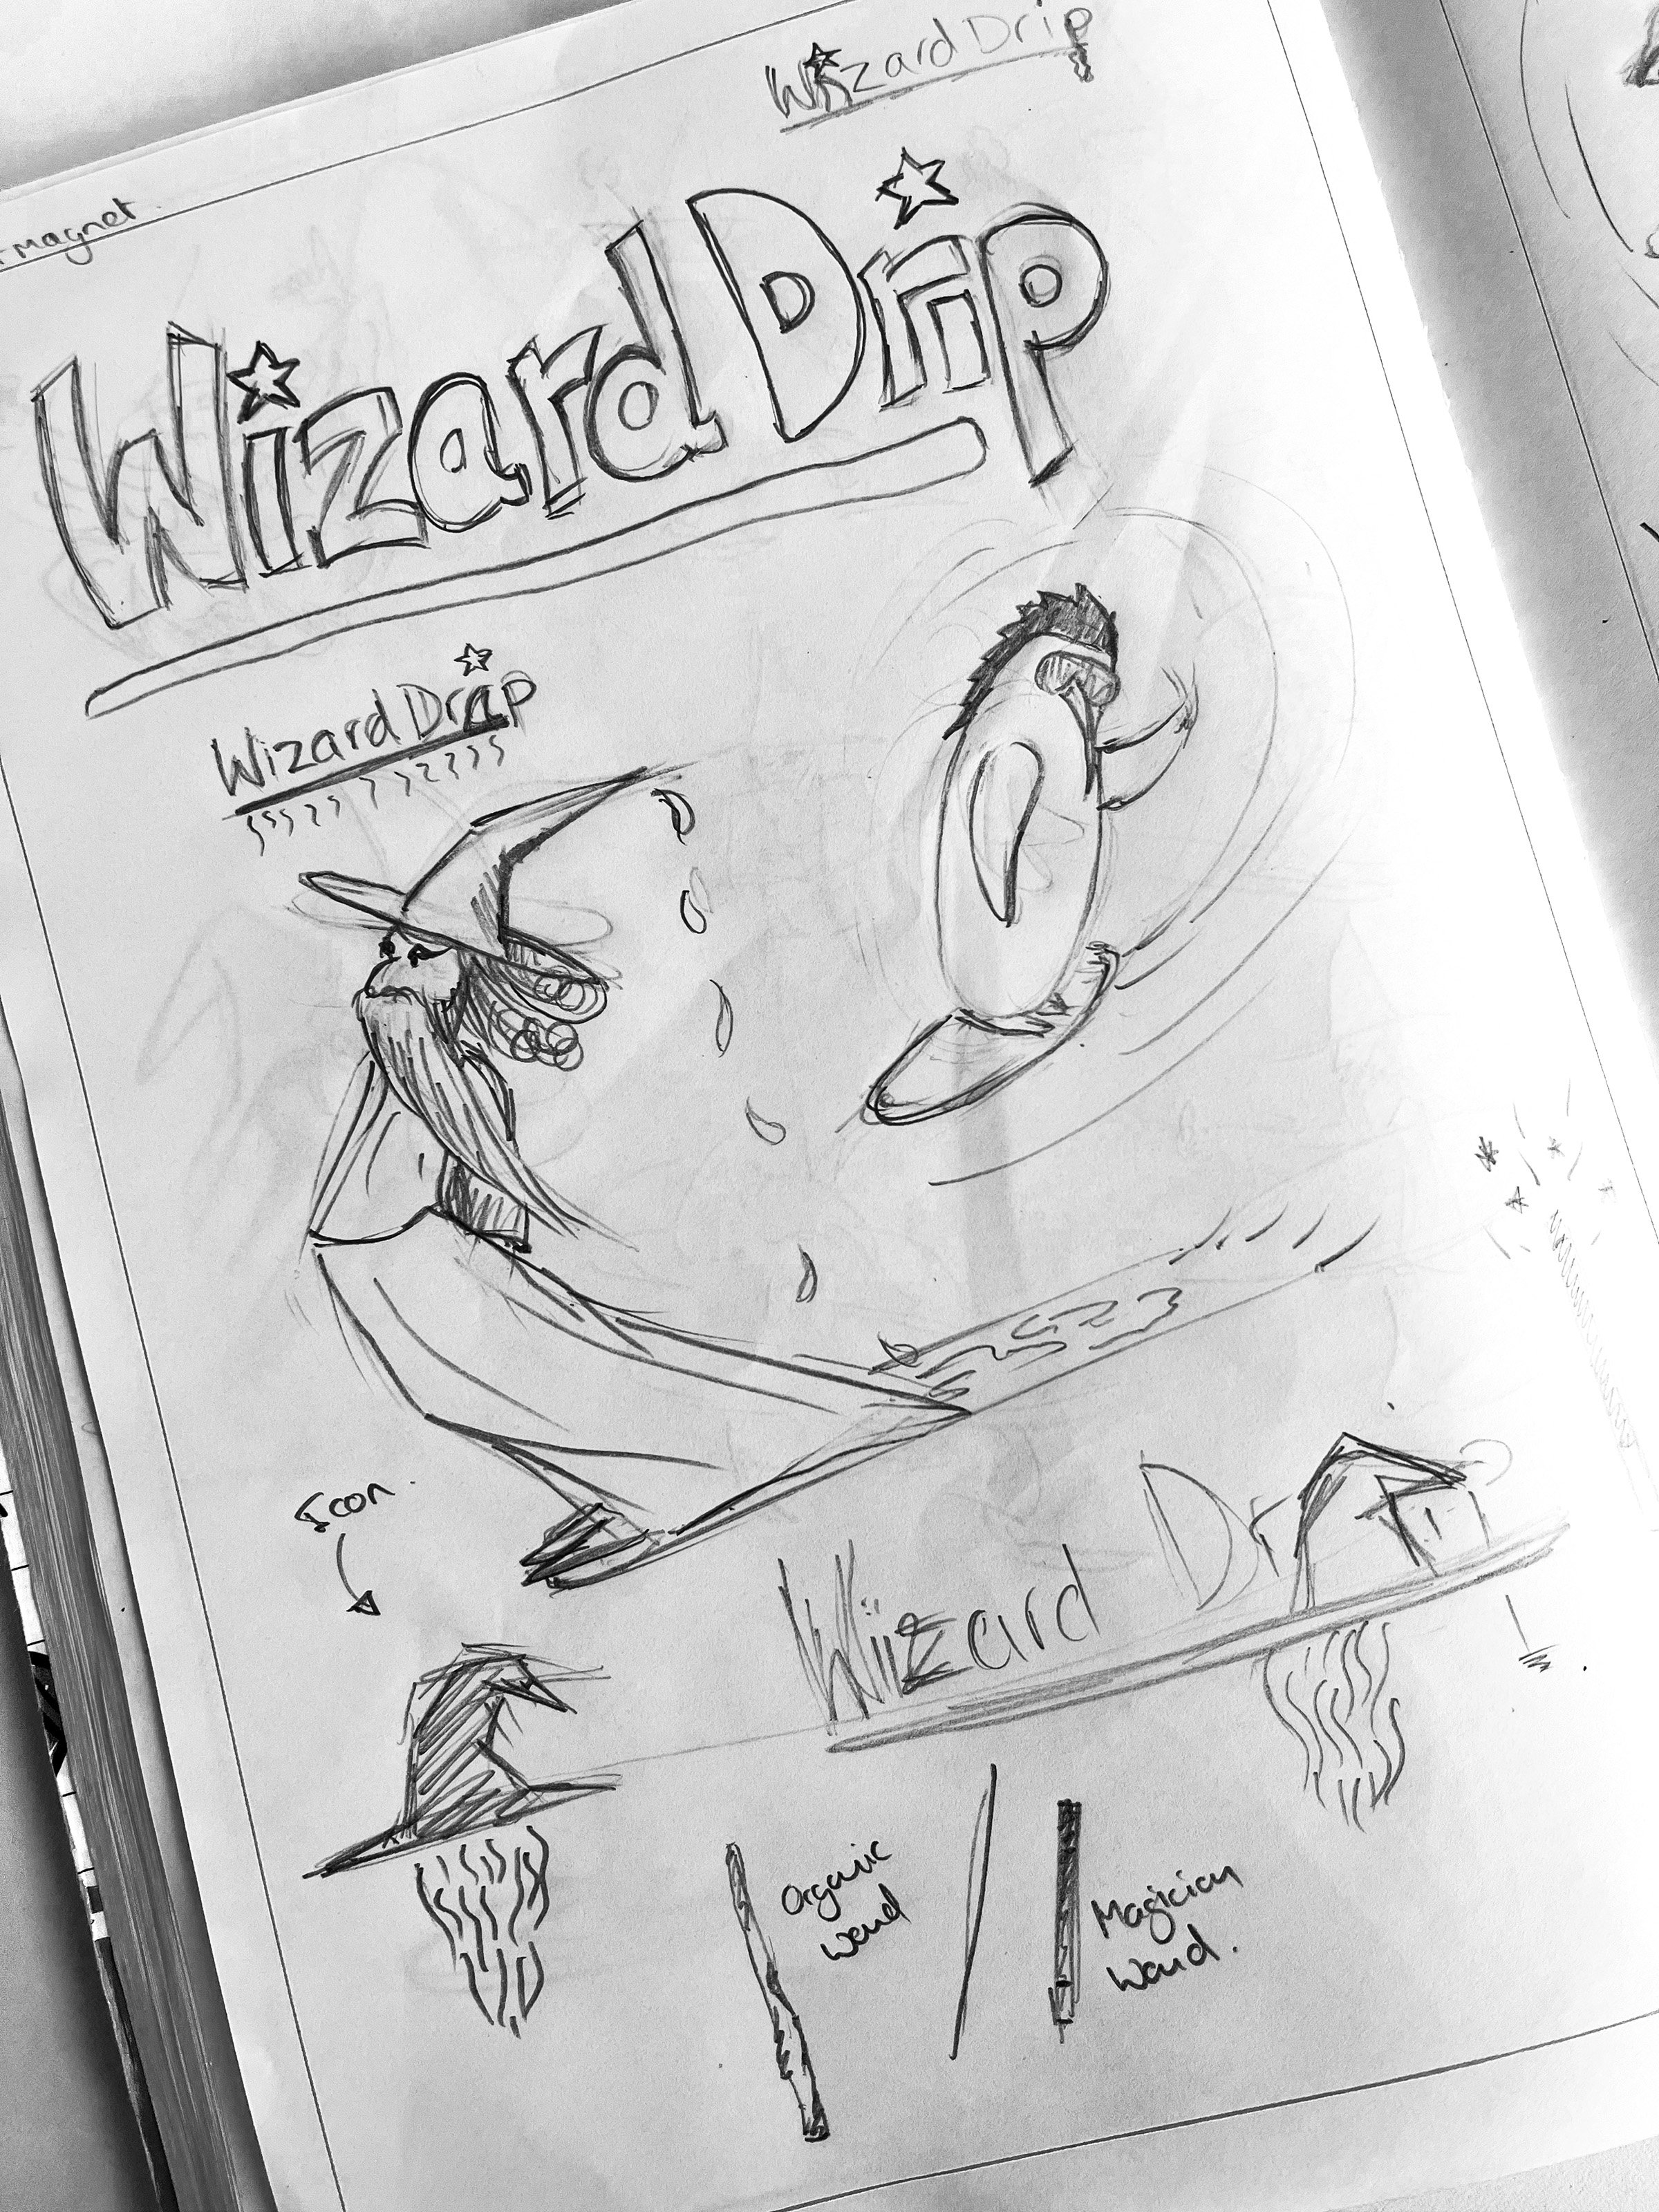 Wizard Drip
magnet
Wizard Drip
Wizard Drip
Icon.
Wizard Dri
Organic
wand
Magician
Wand.